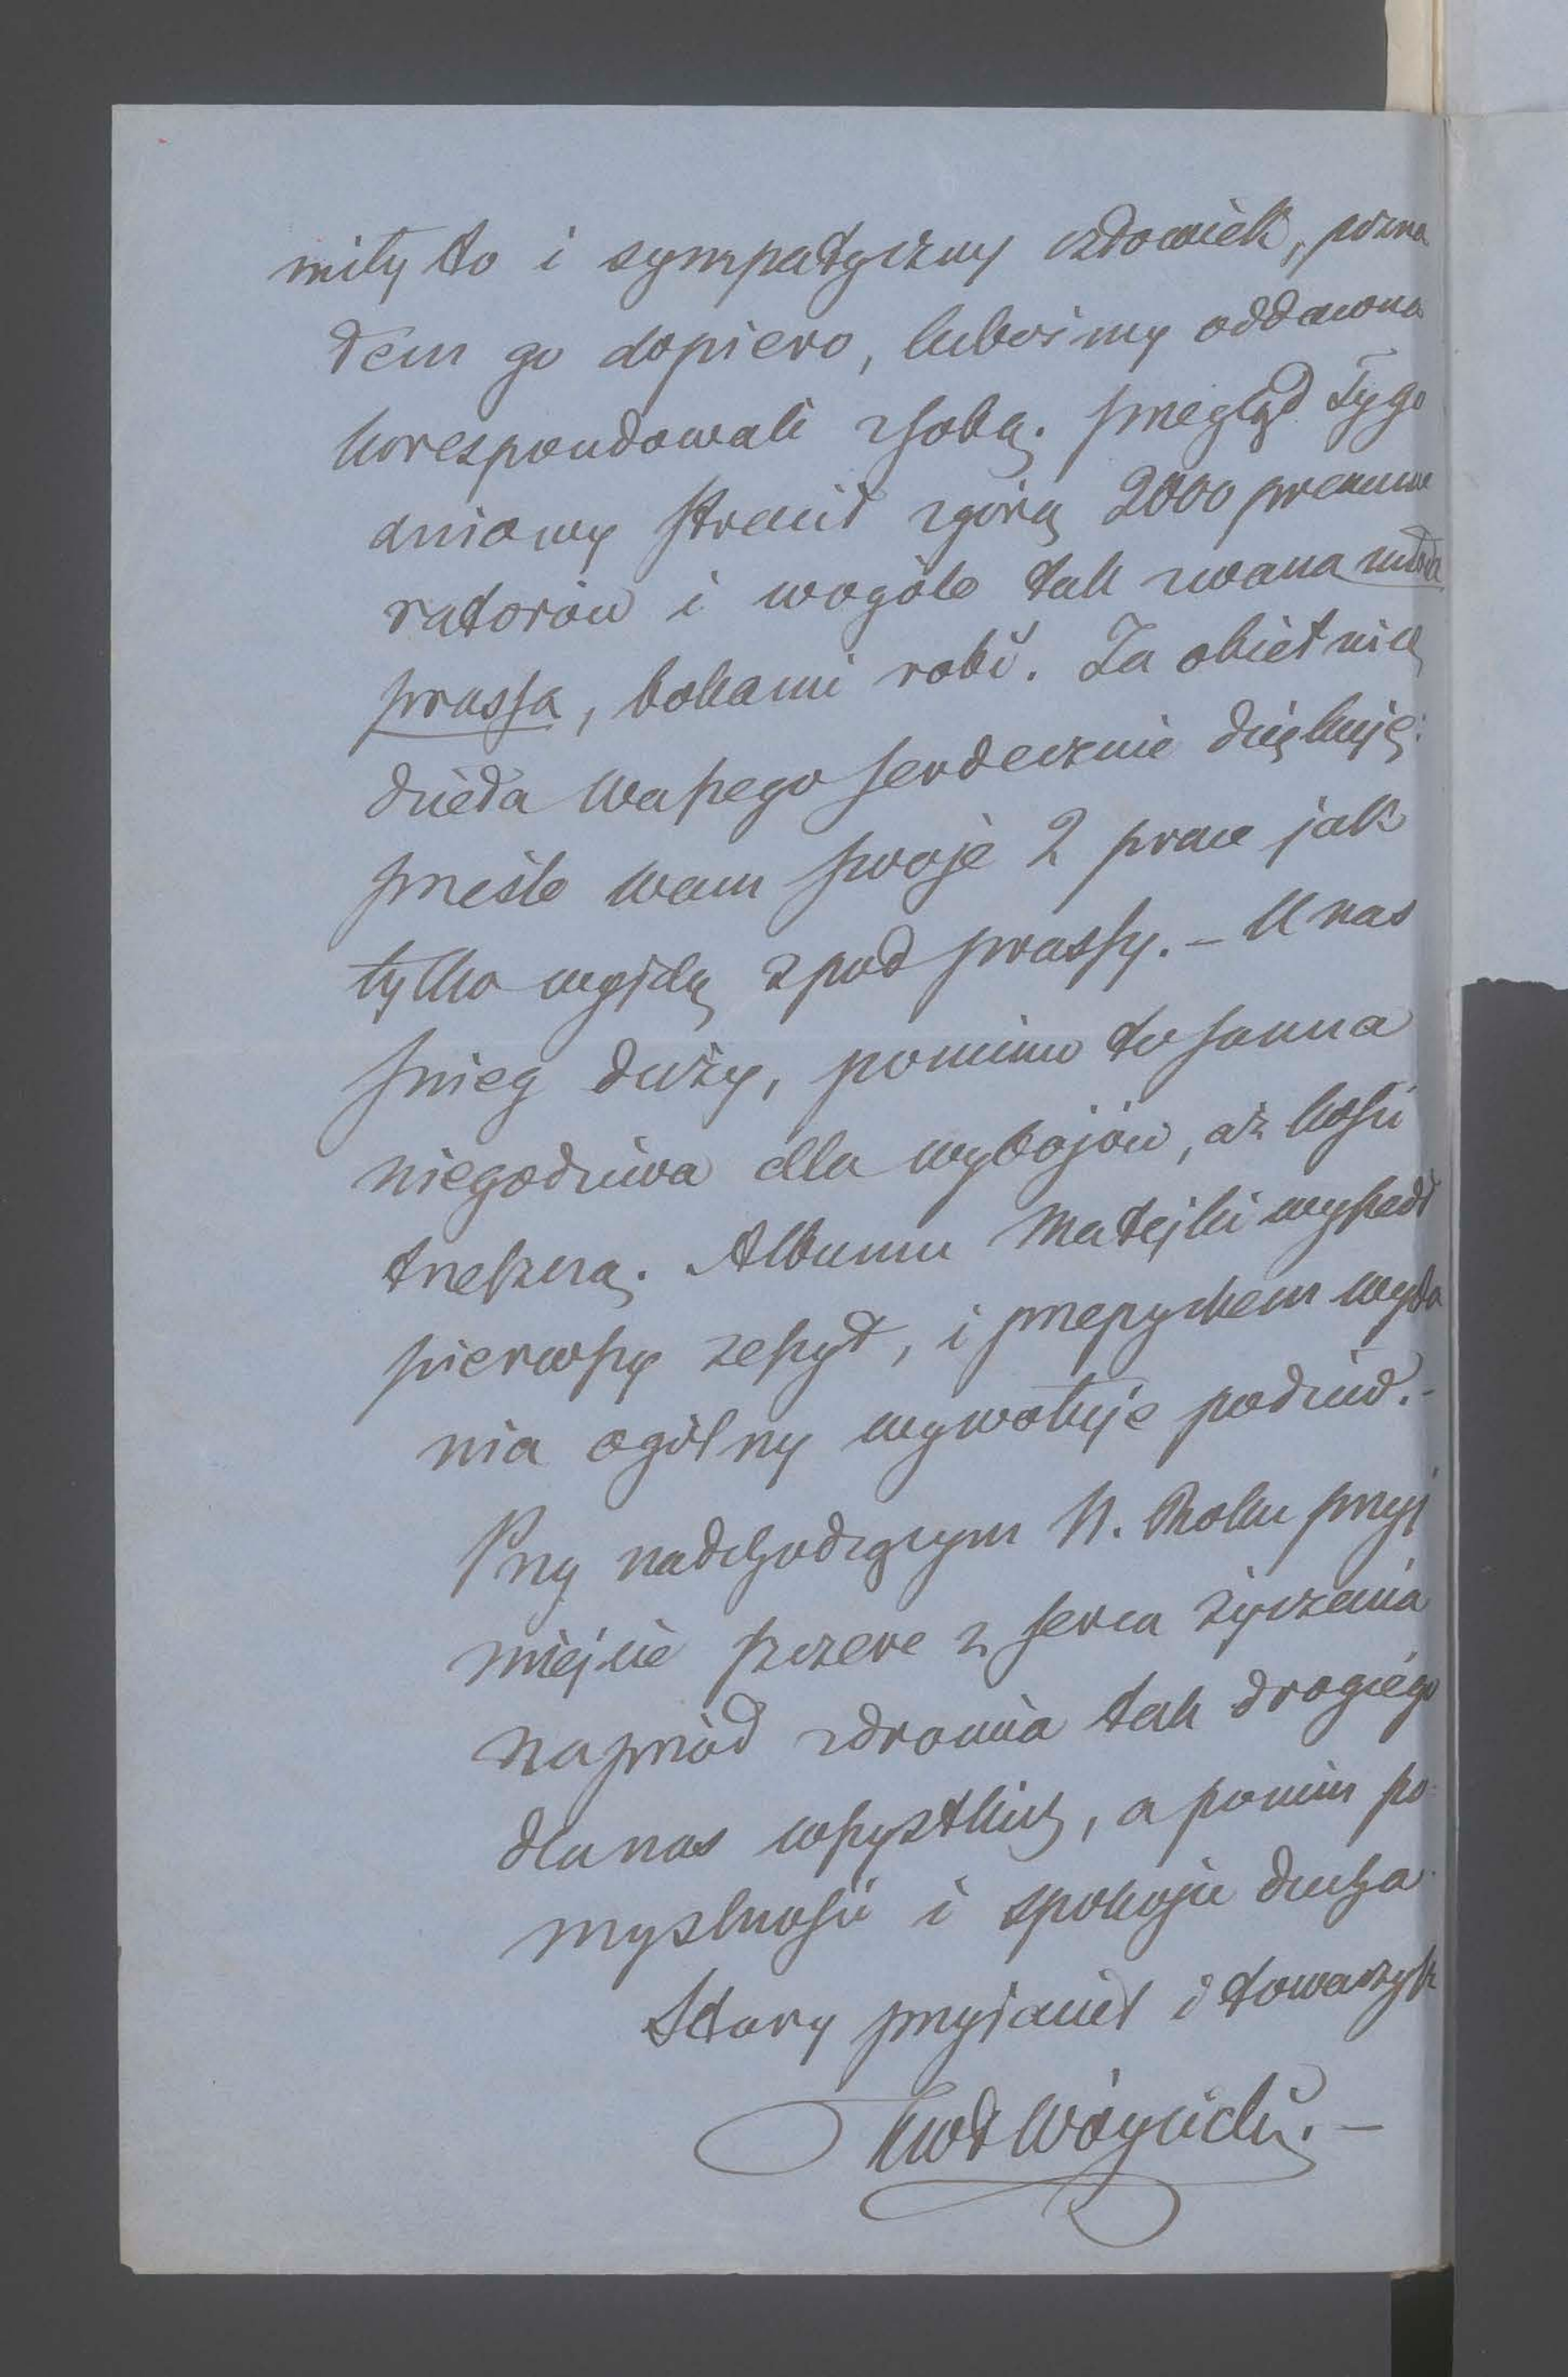 miły to i sympatyczny człowiek, pozna
łem go dopiero, lubośmy oddawna
korespondowali z sobą. Przegląd Tygo
dniowy stracił zgórą 2000 prenume
ratorów i wogóle tak zwana młoda
prassa, bokami robi. Za obietnicę
dzieła Waszego serdecznie dziękuję:
prześlę wam swoje 2 prace jak
tylko wyjdą zpod prassy. – U nas
śnieg duży, pomimo to sanna
niegodziwa dla wybojów, aż kości
trzeszczą. Albumu Matejki wyszedł
pierwszy zeszyt, i przepychem wyda
nia ogólny wywołuje podziw. –
Przy nadchodzącym N. Roku przyj
miejcie szczere z serca życzenia
naprzód zdrowia tak drogiego
dla nas wszystkich, a po
myślności i spokoju ducha.
Stary przyjaciel i towarzysz
KWł Wóycicki. –